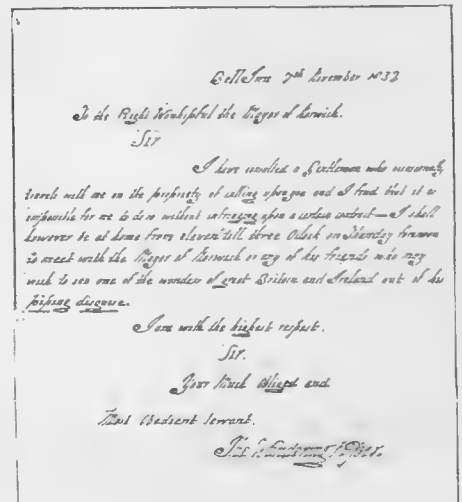 Bell Inn 7th November 1832
To the Right Worshipful the Mayor of Norwich.
Sir
I have consulted a Gentleman who
travels with me on the propriety of calling upon you and I find that it is
impossible for me to do so without infringing upon a certain contract — I shall
however be at home from eleven till three Oclock on Thursday
to meet with the Mayor of Norwich or any of his friends who may
wish to see one of the wonders of great Britain and Ireland out of his
disguise.
I am with the highest respect.
Sir.
Your Much Obliged and
Most Obedient Servant.